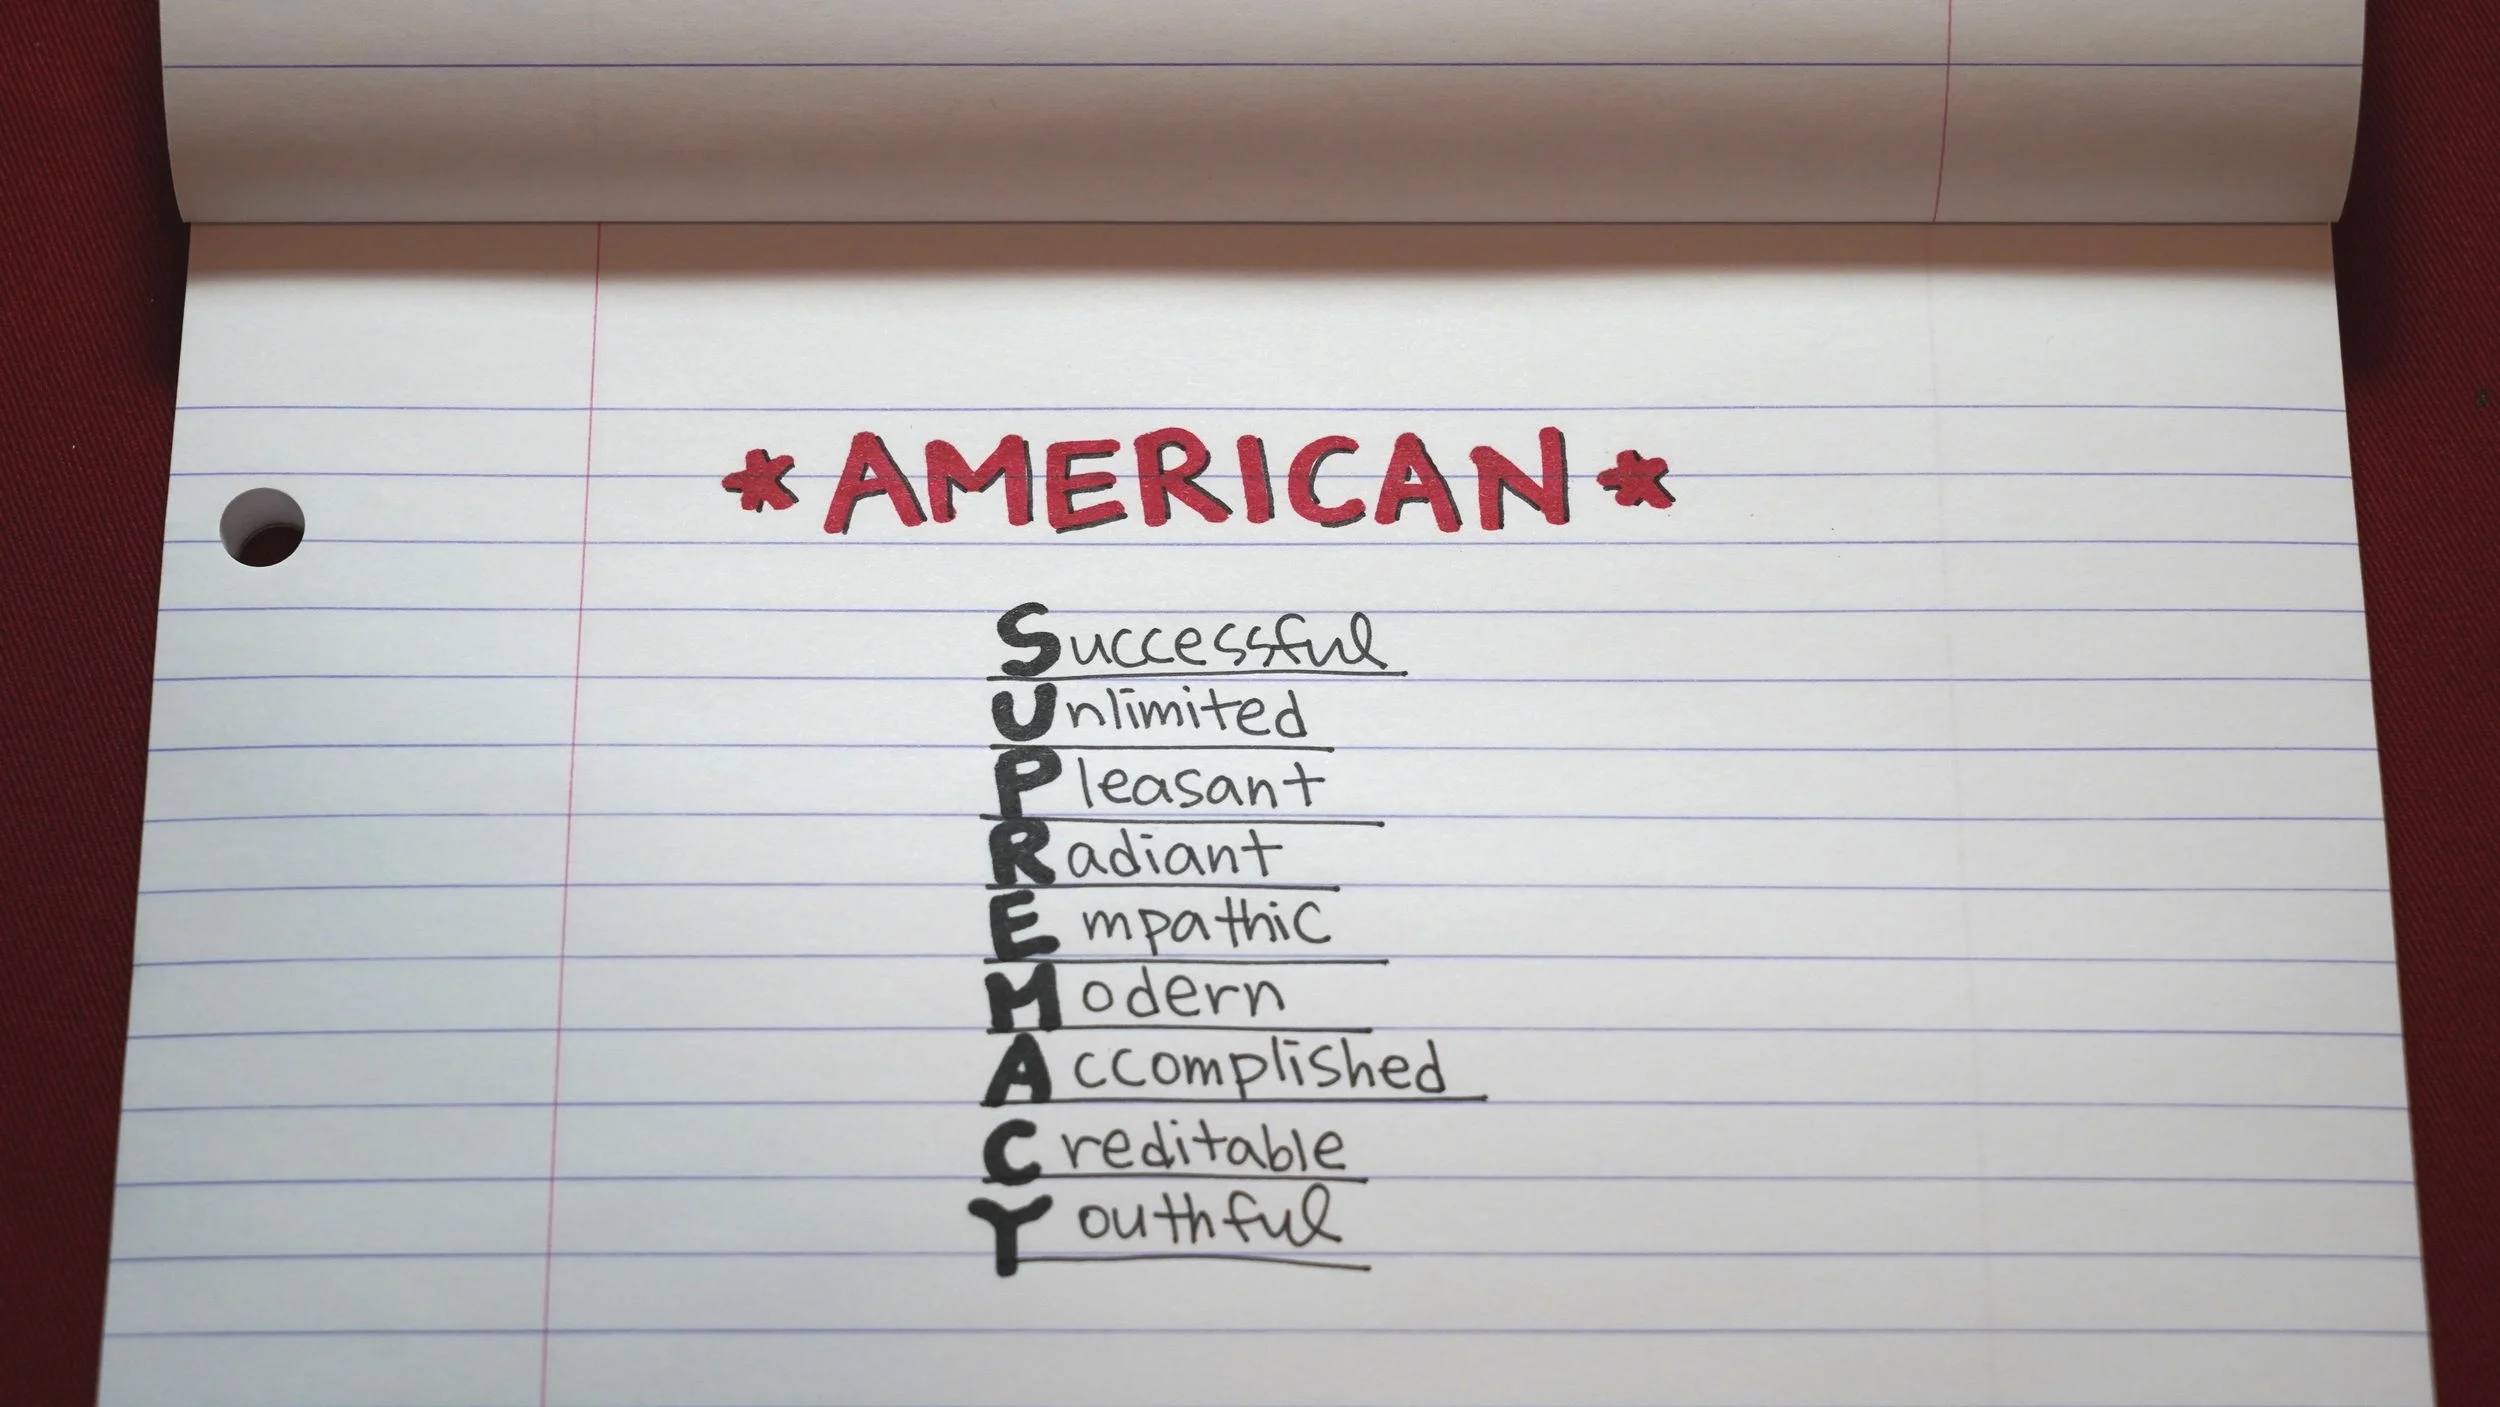 *AMERICAN*
Successful
Unlimited
Pleasant
Radiant
Empathic
Modern
Accomplished
Creditable
Youthful